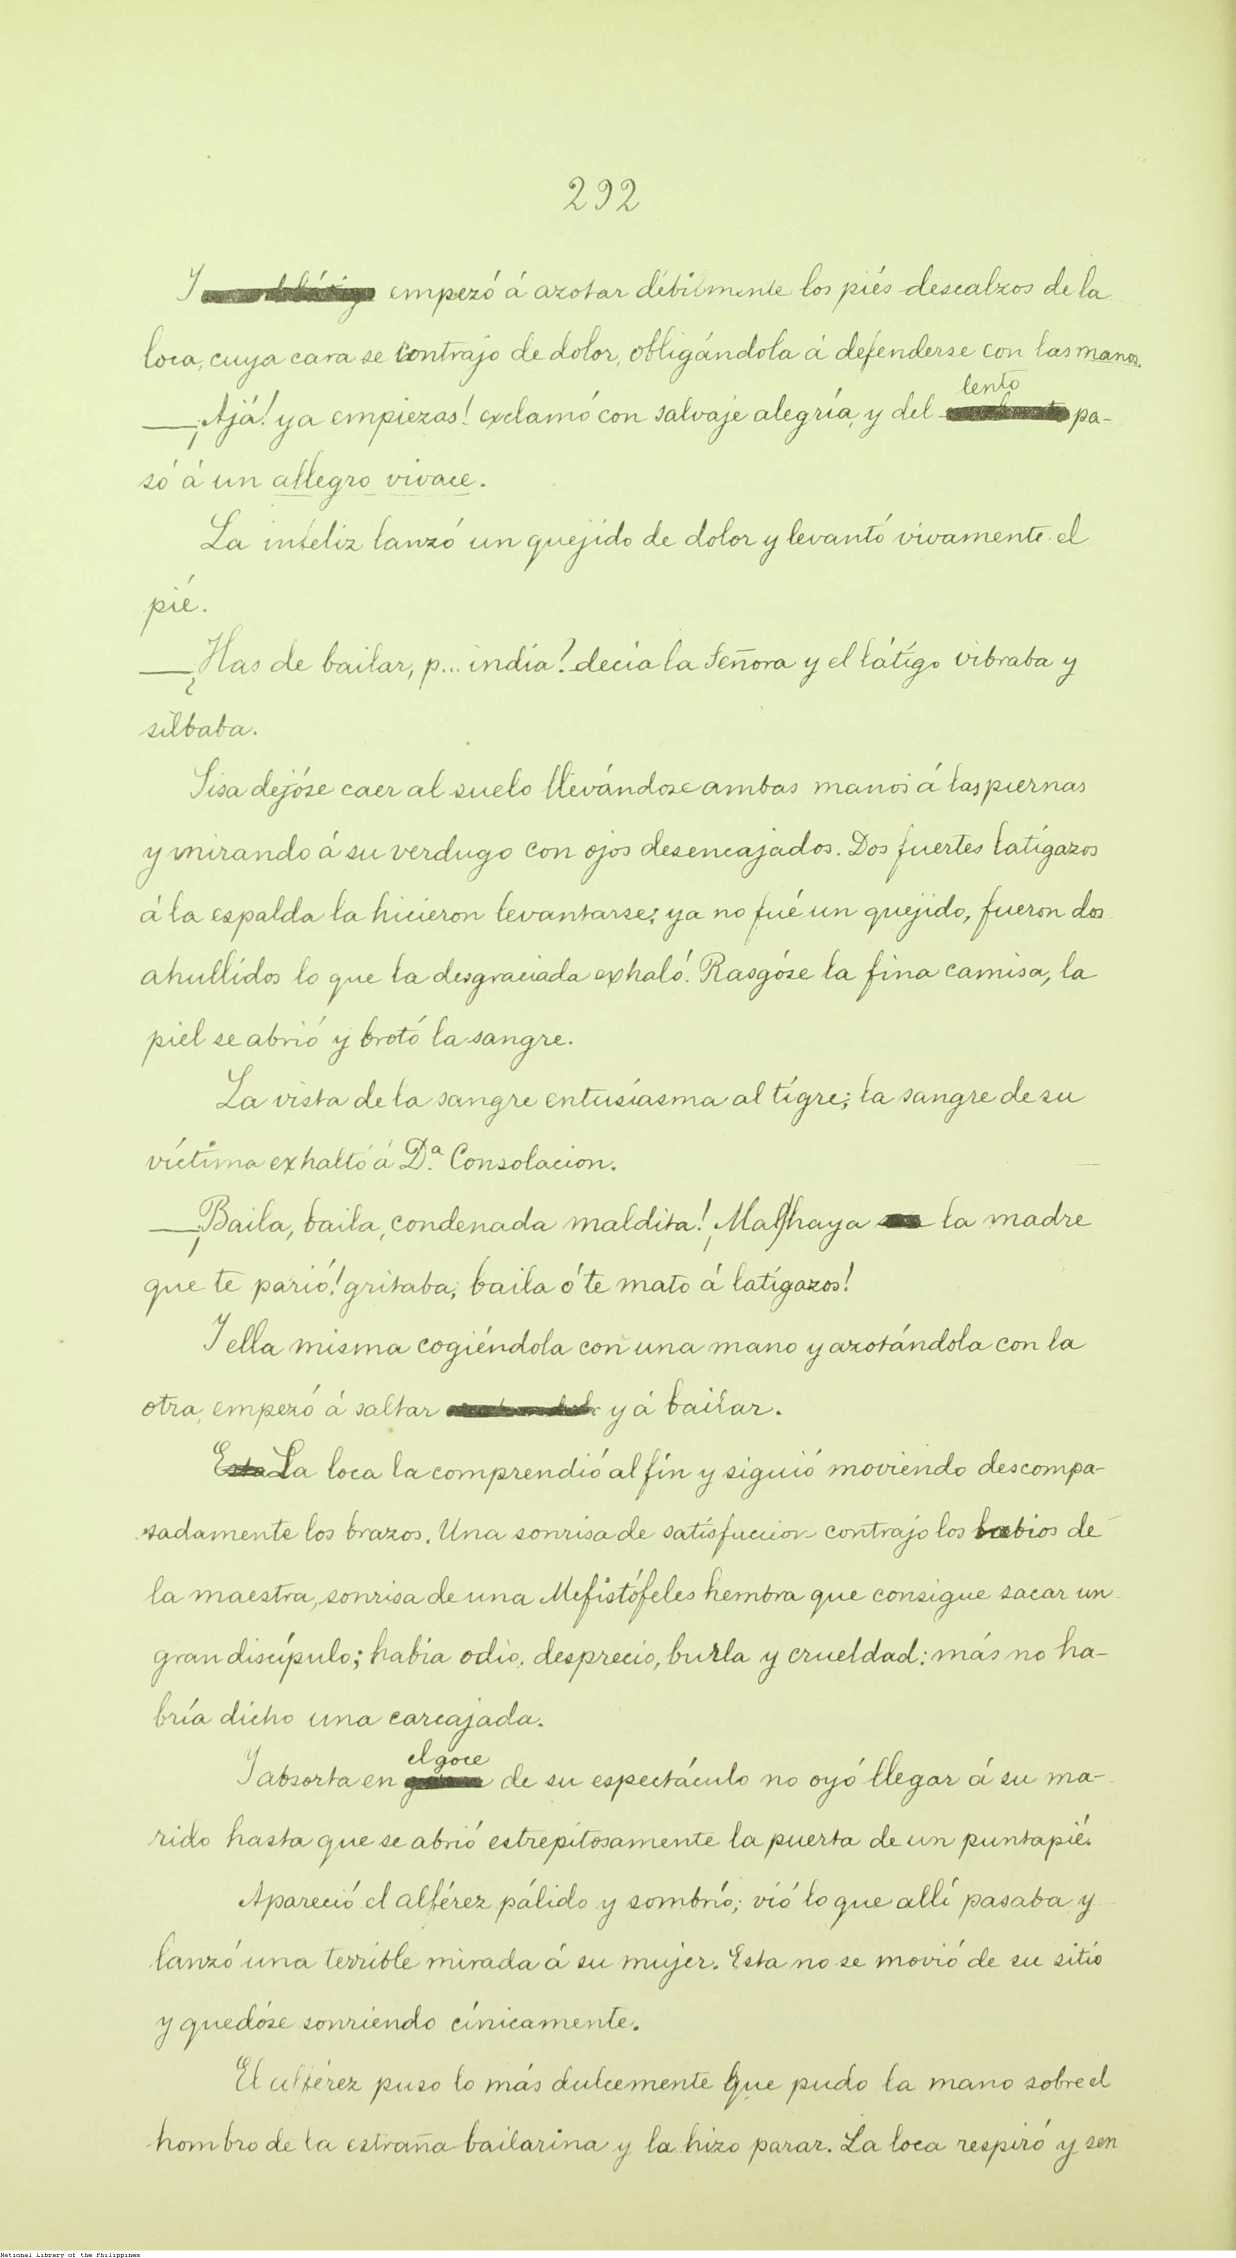 292
Y empezó á azotar débilmente los piés descalzos de la
loca, cuya cara se contrajo de dolor, obligándola á defenderse con las manos.
—¡Ajá! ya empiezas! exclamó con salvaje alegría, y del lento pa-
só á un allegro vivace.
La infeliz lanzó un quejido de dolor y levantó vivamente el
pié.
—¿Has de bailar, p... india? decía la Señora y el látigo vibraba y
silbaba.
Sisa dejóse caer al suelo llevándose ambas manos á las piernas
y mirando á su verdugo con ojos desencajados. Dos fuertes latigazos
á la espalda la hicieron levantarse; ya no fué un quejido, fueron dos
ahullidos lo que la desgraciada exhaló. Rasgóse la fina camisa, la
piel se abrió y brotó la sangre.
La vista de la sangre entusiasma al tigre; la sangre de su
víctima exhaltó á Dª. Consolacion.
—¡Baila, baila, condenada maldita! ¡Mal haya la madre
que te parió! gritaba; baila ó te mato á latigazos!
Y ella misma cogiéndola con una mano y azotándola con la
otra, empezó á saltar y á bailar.
Esta La loca la comprendió al fin y siguió moviendo descompa-
sadamente los brazos. Una sonrisa de satisfaccion contrajo los labios de
la maestra, sonrisa de una Mefistófeles hembra que consigue sacar un
gran discípulo; había odio, desprecio, burla y crueldad: más no ha-
bría dicho una carcajada.
Y absorta en el goce de su espectáculo no oyó llegar á su ma-
rido hasta que se abrió estrepitosamente la puerta de un puntapié.
Apareció el alférez pálido y sombrío; vió lo que allí pasaba y
lanzó una terrible mirada á su mujer. Esta no se movió de su sitio
y quedóse sonriendo cínicamente.
El alférez puso lo más dulcemente que pudo la mano sobre el
hombro de la estraña bailarina y la hizo parar. La loca respiró y sen
National Library of the Philippines